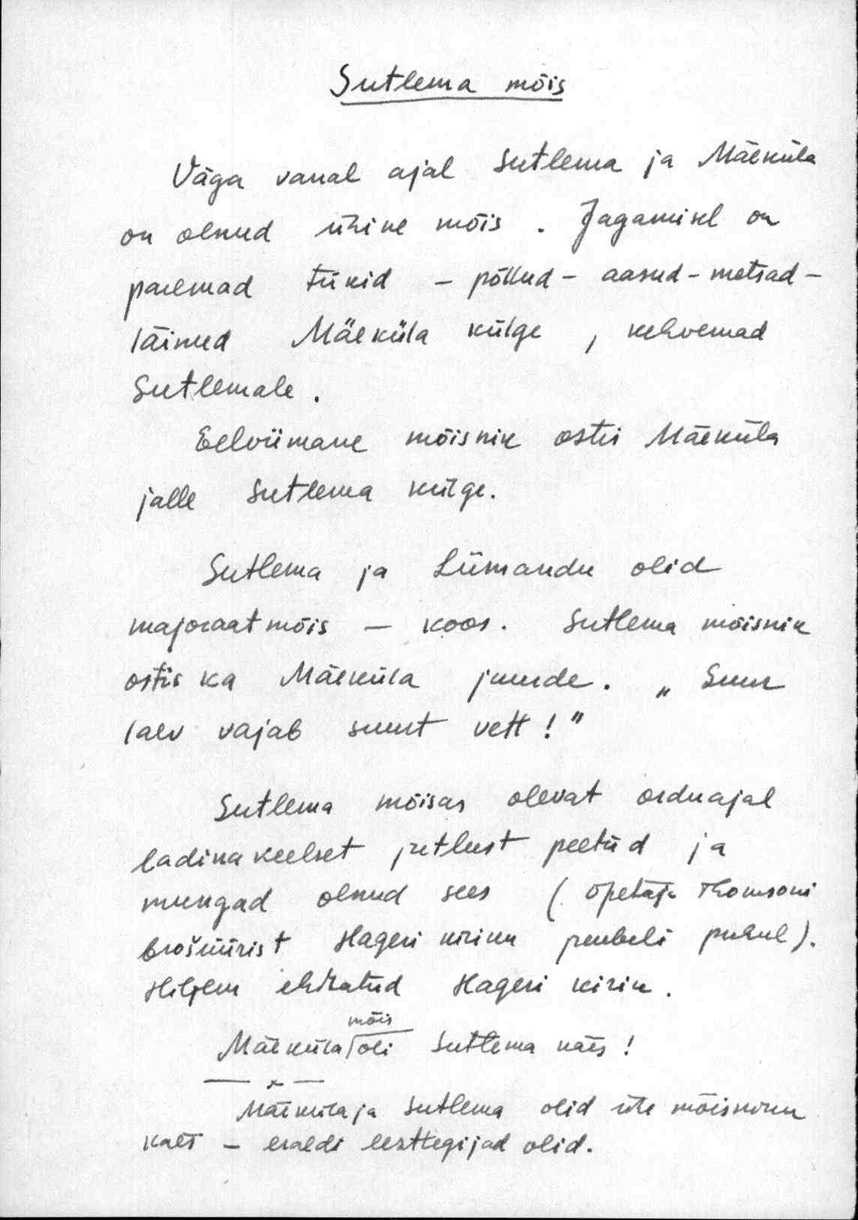 Sutlema mõis
Väga vanal ajal Sutlema ja Mäeküla
on olnud ühine mõis. Jagamisel on
paremad tükid – põllud – aasud – metsad –
läinud Mäeküla külge, kehvemad
Sutlemale.
Eelviimane mõisnik ostis Mäeküla
jalle Sutlema külge.
Sutlema ja Liimandu olid
majoraatmõis – koos. Sutlema mõisnik
ostis ka Mäeküla juurde. „Suur
laev vajab suurt vett!"
Sutlema mõisas olevat orduajal
ladinakeelset jutlust peetud ja
mungad olnud sees (õpetaja Thomsoni
brošüürist Hageri kiriku juubeli puhul).
Hiljem ehitatud Hageri kirik.
mõis
Mäeküla oli Sutlema käes!
— x —
Mäeküla ja Sutlema olid ühe mõisniku
käes – eraldi